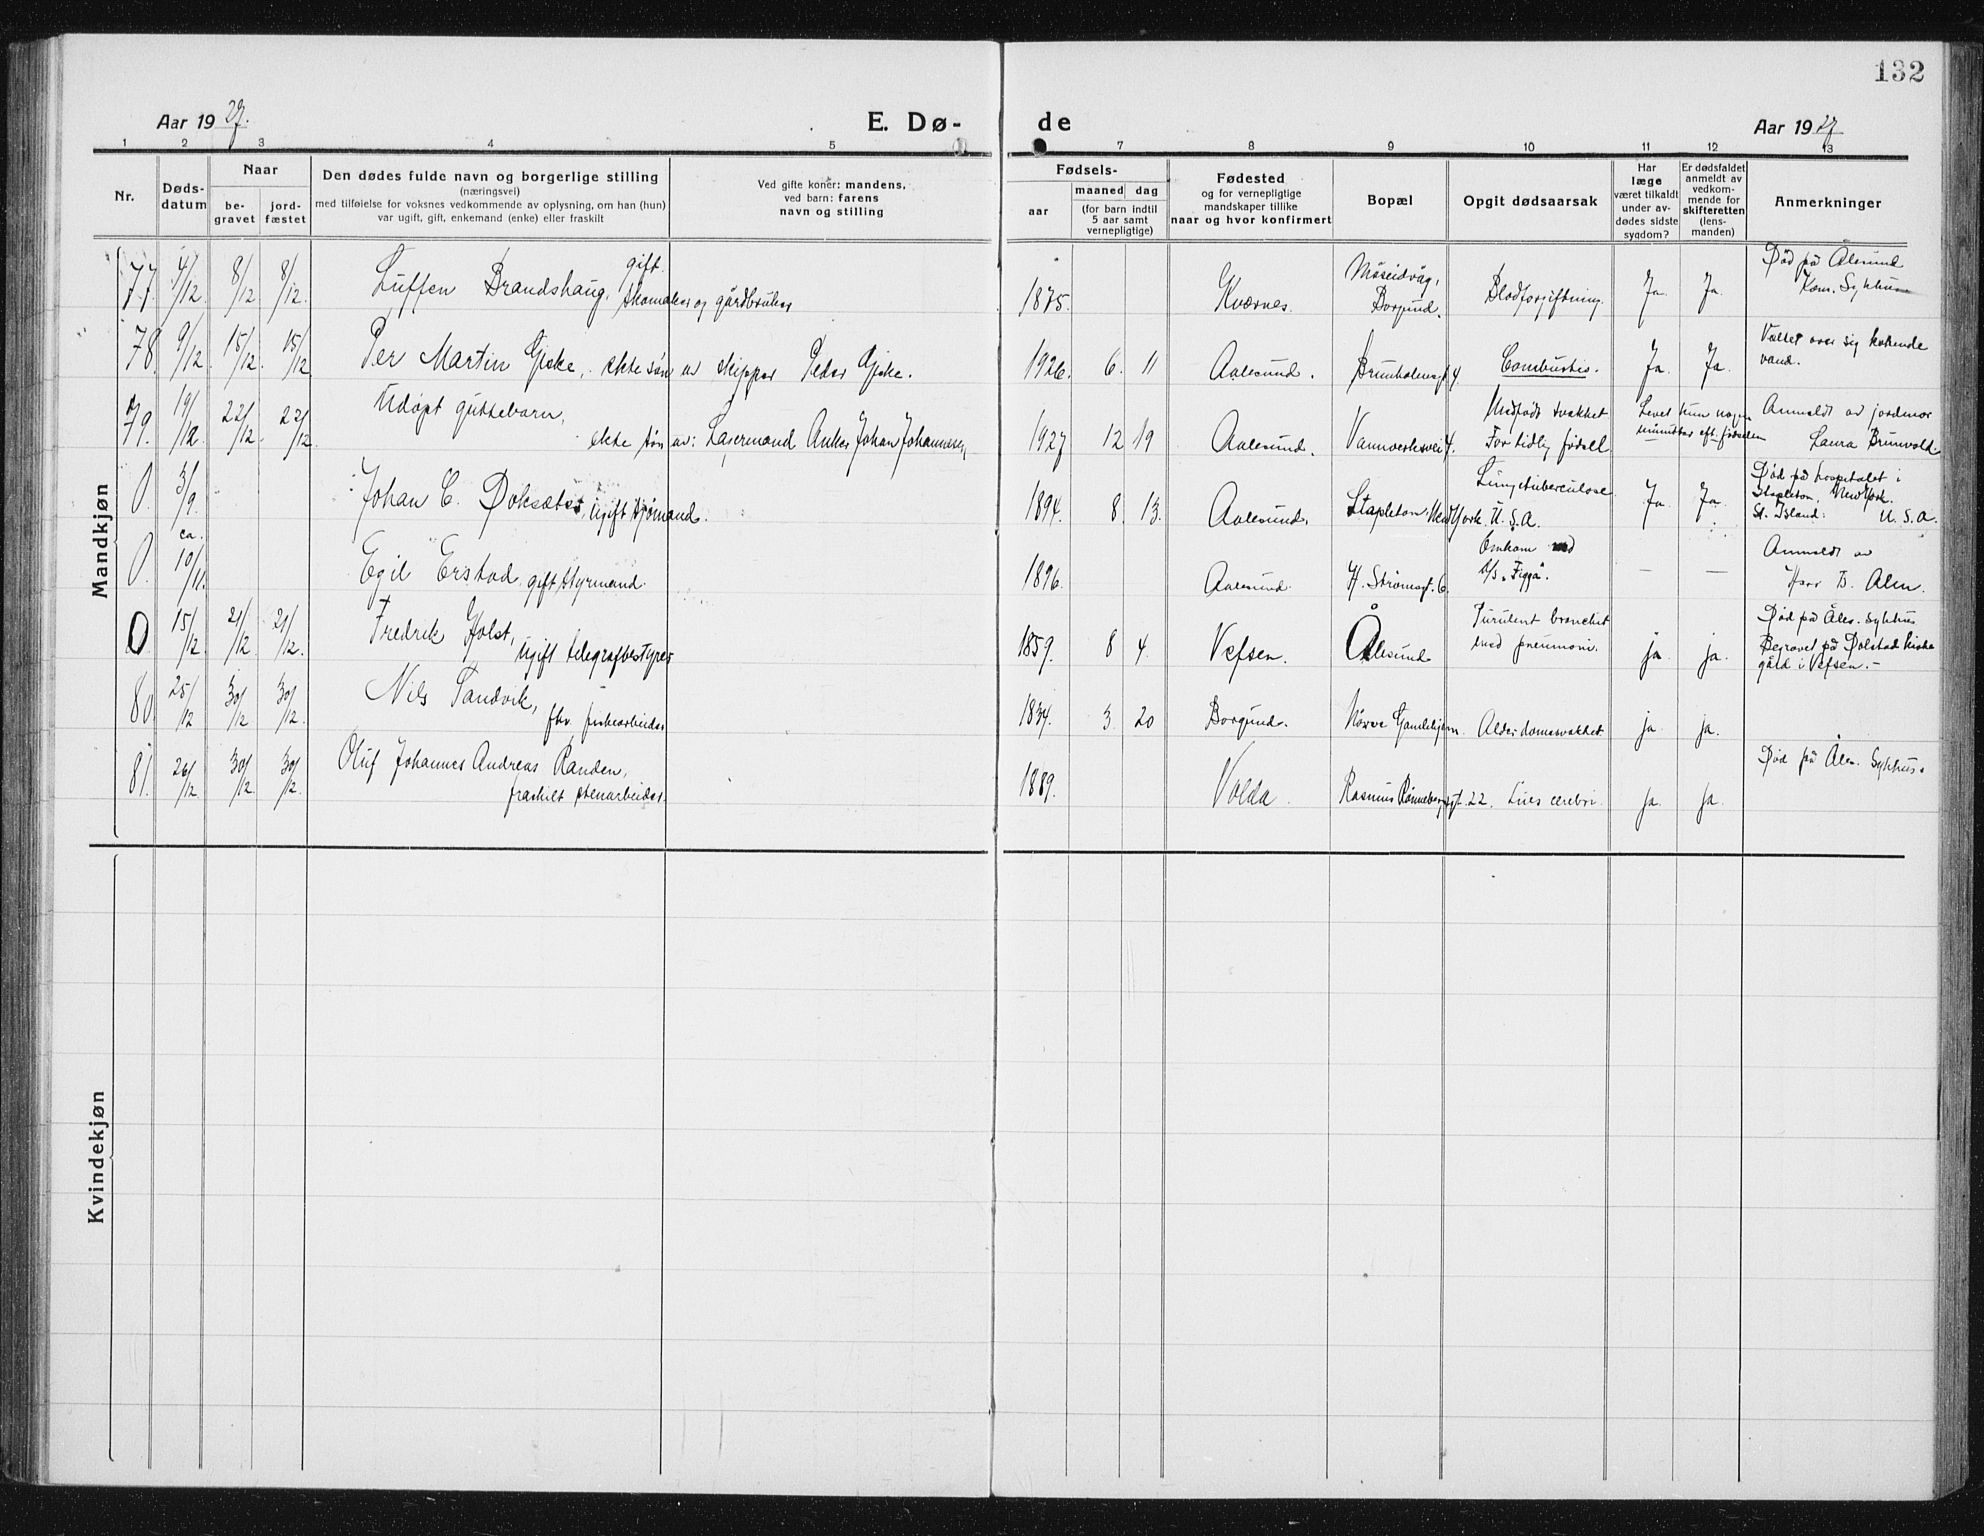 132
Aar 1927. E. Dø- de Aar 1927
1 2 3 4 5 7 8 9 10 11 12 13
Nr.
Døds-
datum
Naar
be-
gravet
jord-
fæstet
Den dødes fulde navn og borgerlige stilling
(næringsvei)
med tilføielse for voksnes vedkommende av oplysning, om han (hun)
var ugift, gift, enkemand (enke) eller fraskilt
Ved gifte koner: mandens,
ved barn: farens
navn og stilling
Fødsels-
aar
maaned dag
(for barn indtil
5 aar samt
vernepligtige)
Fødested
og for vernepligtige
mandskaper tillike
naar og hvor konfirmert
Bopæl
Opgit dødsaarsak
Har
læge
været tilkaldt
under av-
dødes sidste
sygdom?
Er dødsfaldet
anmeldt av
vedkom-
mende for
skifteretten
(lens-
manden)
Anmerkninger
Mandkjøn
77. 4/12. 8/12. 8/12. Luffen Brandshaug, gift skomaker og gårdbruker 1875. Kværnes. Møseidvåg, Borgund. Blodforgiftning. Ja. Ja. Død på Ålesund Kom. Sykhus
78. 9/12. 15/12. 15/12. Per Martin Giske, ekte søn av skipper Peder Giske. 1926. 6. 11 Aalesund. Brunholmgt 4. Combustio. Ja. Ja. Veltet over sig kokende vand.
79. 19/12 22/12. 22/12. Udøpt guttebarn, ekte søn av: Lagermand Anker Johan Johannesen, 1927 12 19 Aalesund. Vannverksvei 4. Medfødt svakhet For tidlig fødsel. Levet kun nogen minutter eft. fødselen Anmeldt av jordmor Laura Brunvold
0 3/9. Johan C. Doksæter, ugift sjømand. 1894. 8. 13. Aalesund. Stapleton, New York. U.S.A. Lungetuberculose. Ja Ja. Død på hospitalet i Stapleton, New York. St. Island. U.S.A.
0. ca. 10/11. Egil Erstad, gift styrmand. 1896. Aalesund. H. Strømsgt. 6. Omkom med D/S "Figgä". — — Anmeldt av Herr B. Alm.
0 15/12 21/12 21/12. Fredrik Holst, ugift telegrafbestyrer 1859. 8 4. Vefsen. Ålesund Purulent bronchit med pneumoni. ja. ja. Død på Åles. sykhus Begravet på Dolstad kirkegård i Vefsen. -
80. 25/12 30/12 30/12. Nils Sandvik, fhv. fiskearbeider 1834. 3. 20 Borgund. Nørve Gamlehjem. Alderdomssvakhet ja ja.
81. 26/12 30/12. 30/12. Oluf Johannes Andreas Randen, fraskilt stenarbeider. 1889. Volda. Rasmus Rønnebergsgt. 22. Lues cerebri. ja. ja. Død på Åles. Sykhus.
Kvindekjøn